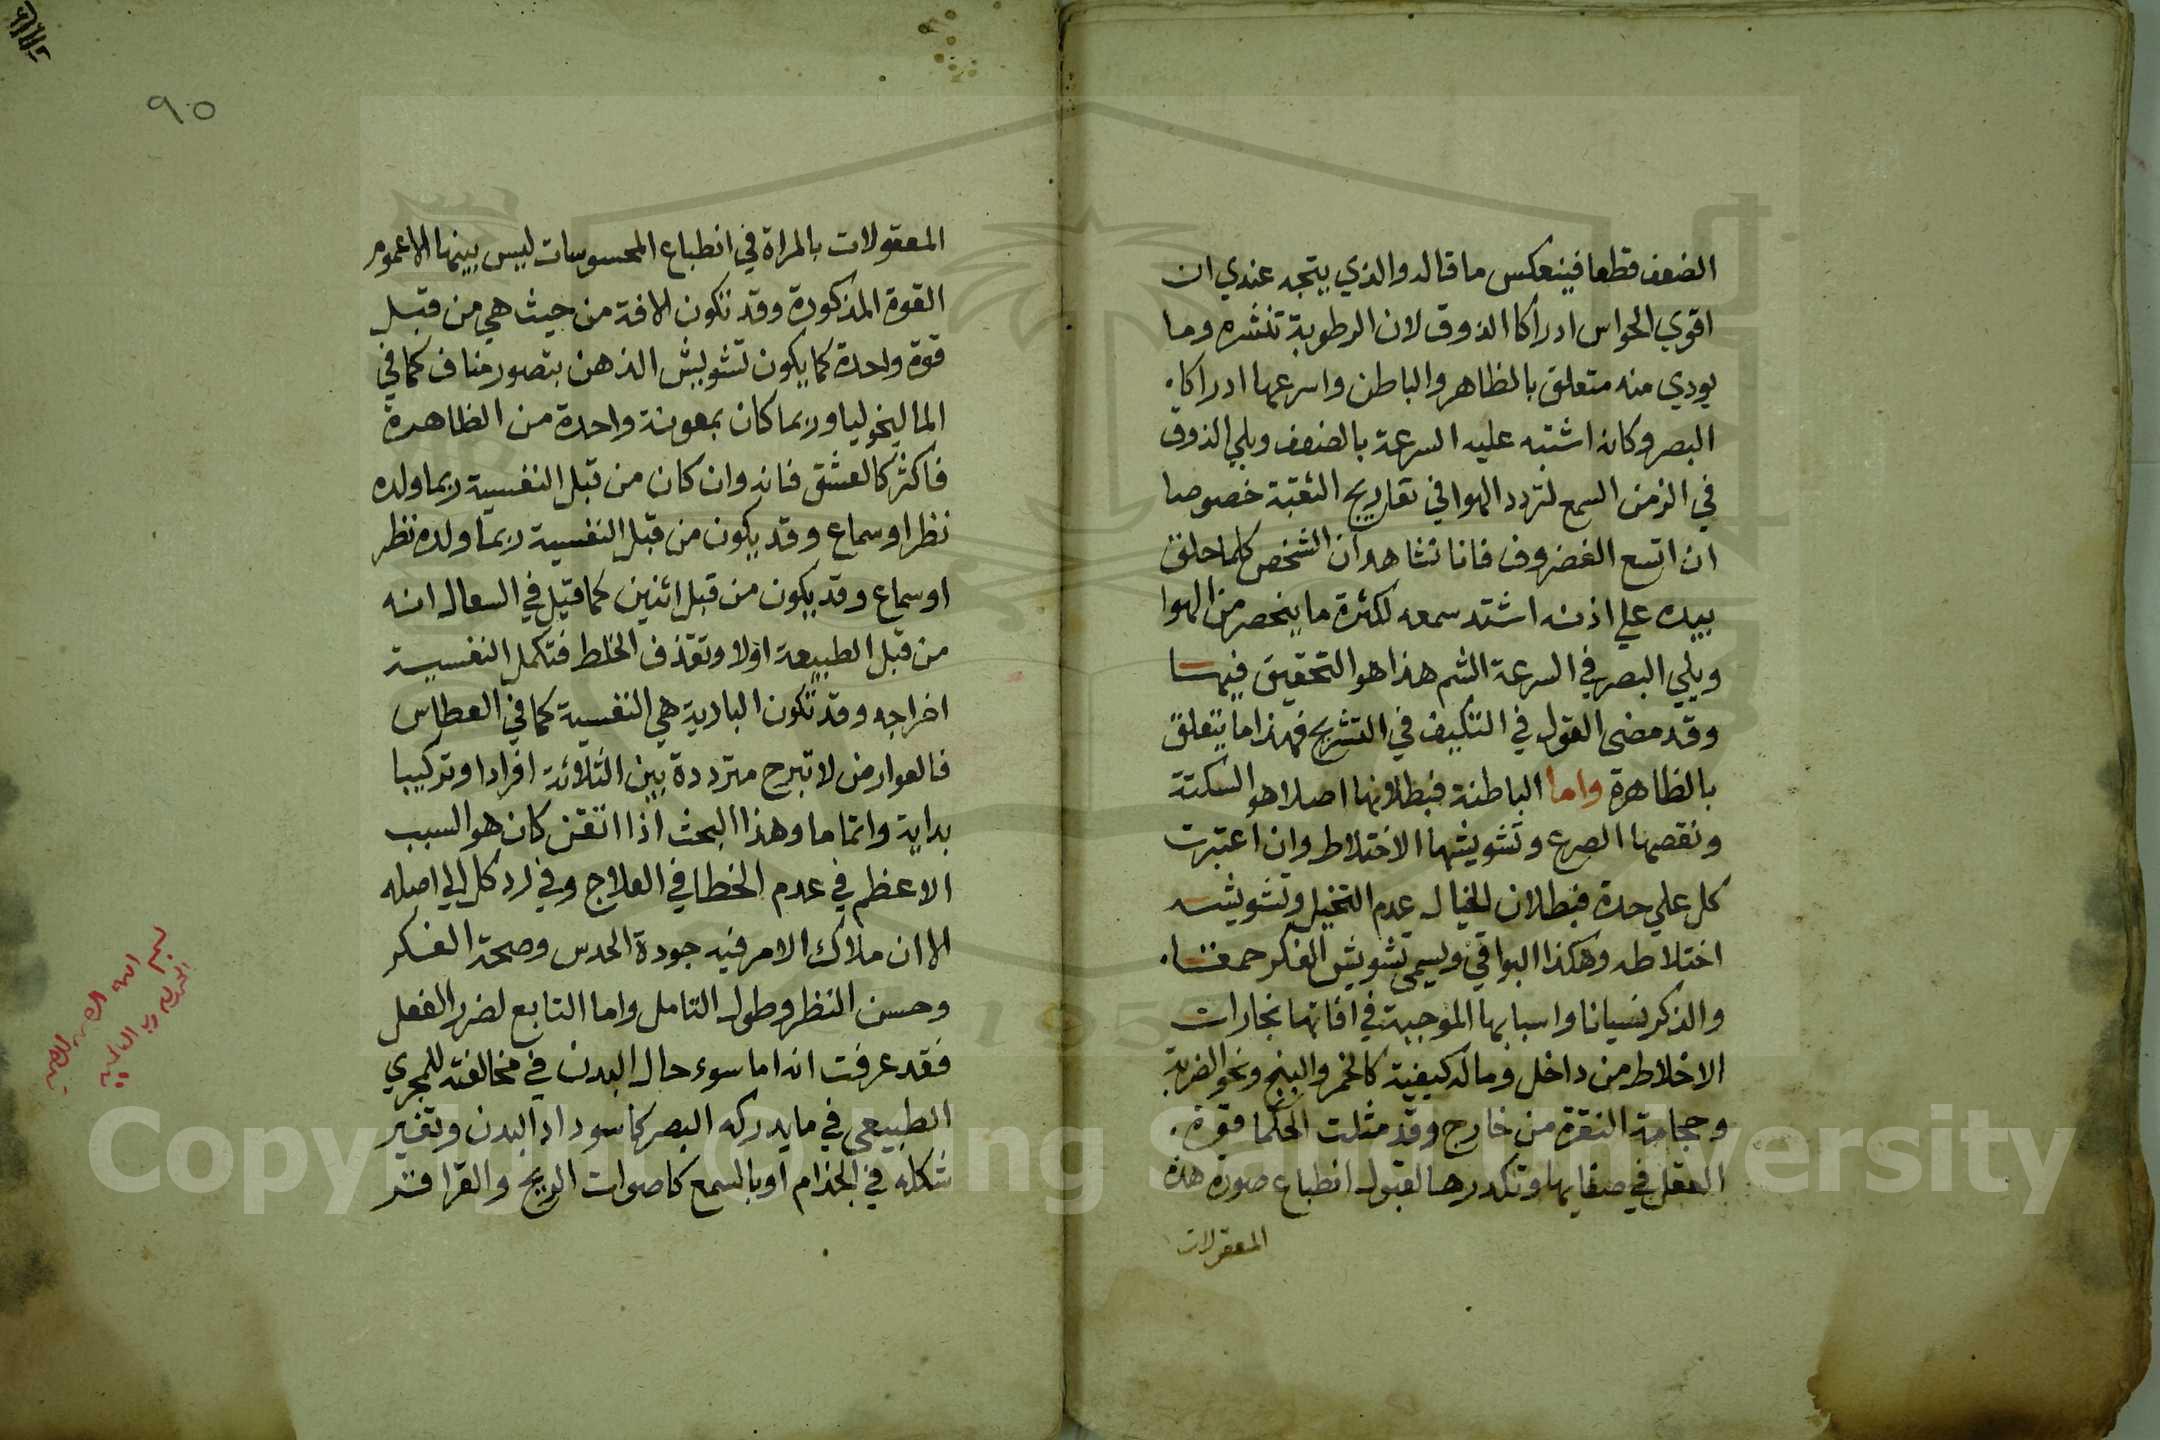 الضعف قطعا فينعكس ما قاله والذي يتجه عندي ان
اقوي الحواس ادراكا الذوق لان الرطوبة تنشره وما
يودي منه متعلق بالظاهر والباطن واسرعها ادراكا
البصر وكانه اشتبه عليه السرعة بالضعف ويلي الذوق
في الزمن السمع لتردد الهوا في تعاريج الثقبة خصوصا
ان اتسع الغضروف فانا نشاهد ان الشخص كلما حلق
بيده علي اذنه اشتد سمعه لكثرة ما ينحصر من الهوا
ويلي البصر في السرعة الشم هذا هو التحقيق فيها
وقد مضى القول في التكييف في التشريح فهذا ما يتعلق
بالظاهرة واما الباطنة فبطلانها اصلا هو السكتة
ونقصها الصرع وتشويشها الاختلاط وان اعتبرت
كل علي حدة فبطلان الخيال عدم التخيل وتشويشه
اختلاطه وهكذا البواقي ويسمى تشويش الفكر حمقا
والذكر نسيانا واسبابها الموجبة في افاتها بخارات
الاخلاط من داخل وماله كيفية كالخمر والبنج ونحو الضربة
وحجامة النقرة من خارج وقد مثلت الحكما قوة
العقل في صقايها وتكدرها لقبول انطباع صورة هذه
المعقولات
٩٠
المعقولات بالمراة في انطباع المحسوسات ليس بينها الا عموم
القوة المذكورة وقد تكون الافة من حيث هي من قبل
قوة واحدة كما يكون تشويش الذهن بتصور مناف كما في
الماليخوليا وربما كان بمعونة واحدة من الظاهرة
فاكثر كالعشق فانه وان كان من قبل النفسية ربما ولده
نظر او سماع وقد يكون من قبل النفسية ربما ولده نظر
او سماع وقد يكون من قبل اثنين كما قيل في السعال انه
من قبل الطبيعة اولا وتقذف الخلط فتكمل النفسية
اخراجه وقد تكون البادية هي النفسية كما في العطاس
فالعوارض لا تبرح مترددة بين الثلاثة افرادا وتركيبا
بداية واتماما وهذا البحث اذا اتقن كان هو السبب
الاعظم في عدم الخطا في العلاج وفي رد كل الي اصله
الا ان ملاك الامر فيه جودة الحدس وصحة الفكر
وحسن النظر وطول التامل واما التابع لضرر الفعل
فقد عرفت انه اما سوء حال البدن في مخالفته للمجري
الطبيعي في ما يدركه البصر كاسوداد البدن وتغير
شكله في الجذام او بالسمع كاصوات الريح والقراقر
بسم الله
Copyright © King Saud University
1957